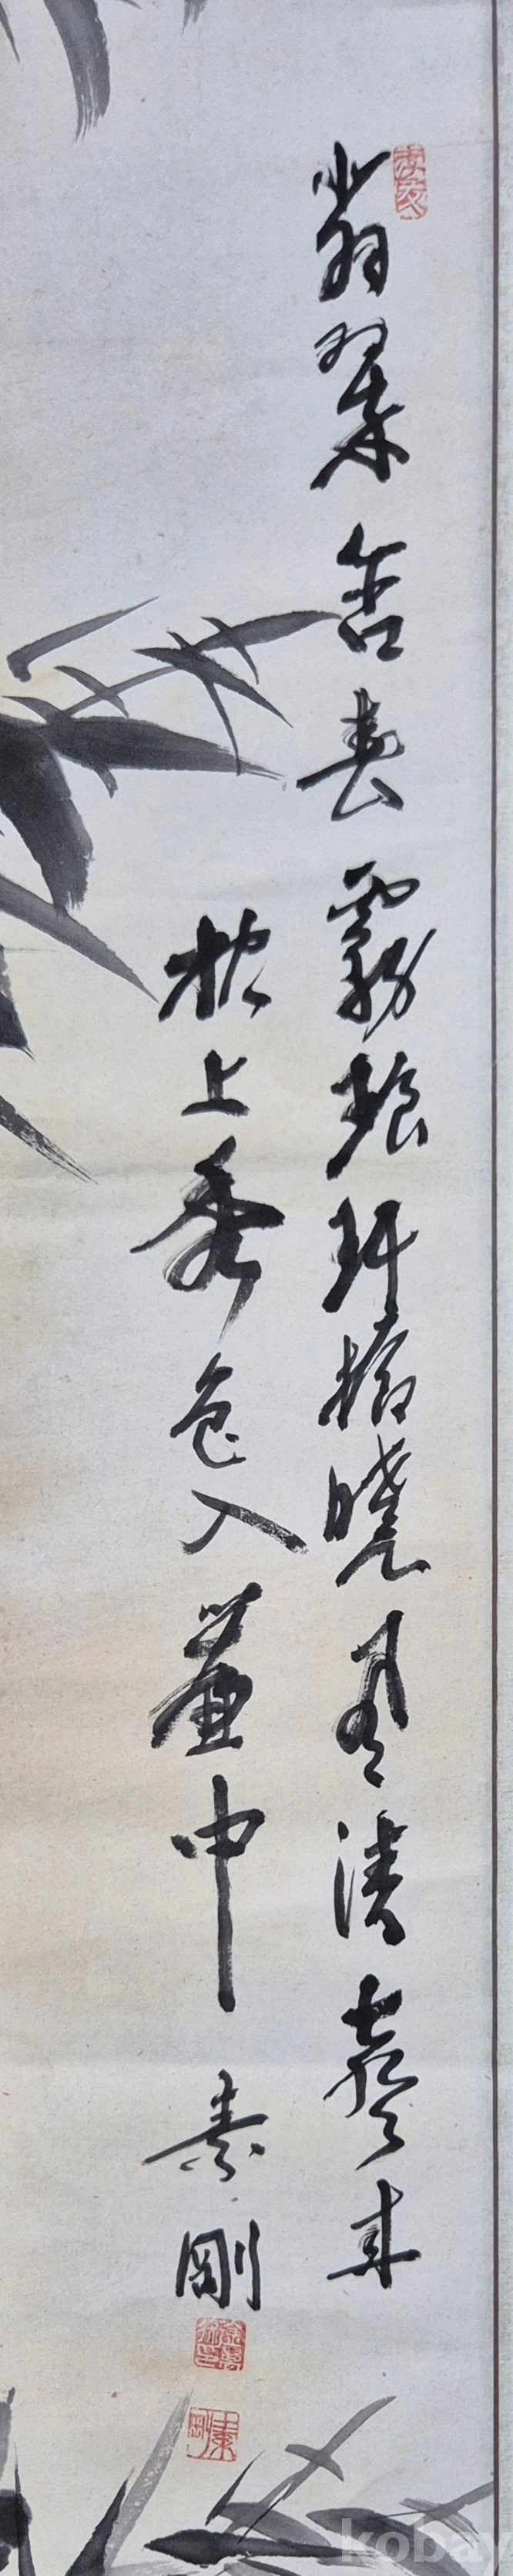 翡翠含春霧琅玕搖曉風清聲來
枕上秀色入簾中 素剛
kobay